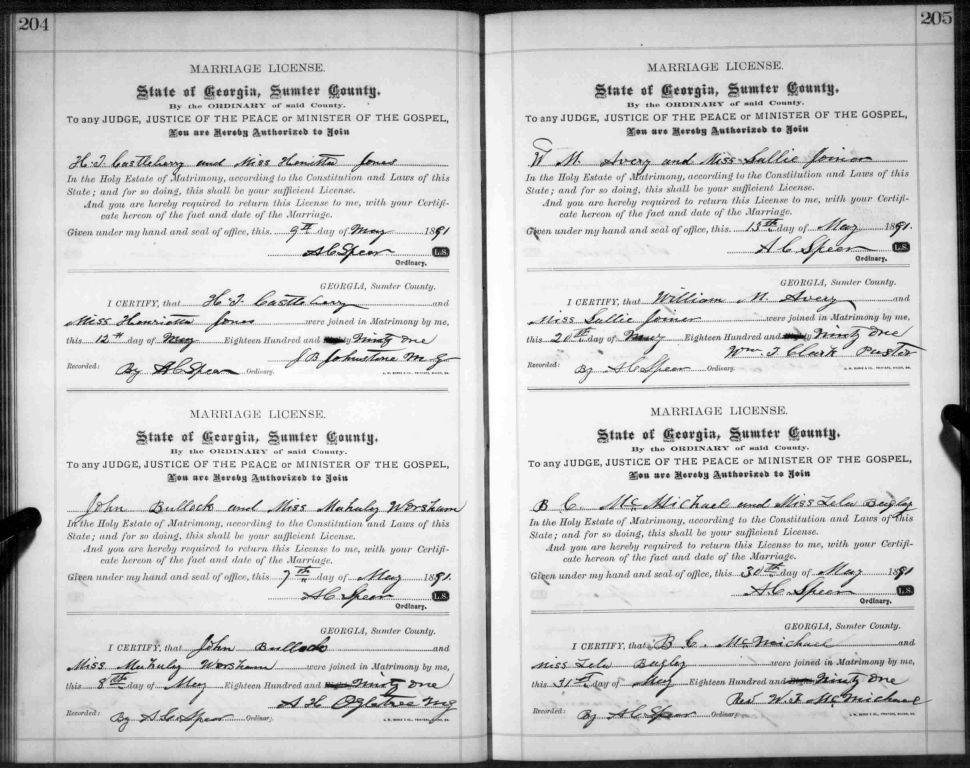 204
MARRIAGE LICENSE.
State of Georgia, Sumter County.
By the ORDINARY of said County.
To any JUDGE, JUSTICE OF THE PEACE or MINISTER OF THE GOSPEL,
You are Hereby Authorized to Join
H. T. Castleberry and Miss Henrietta Jones
In the Holy Estate of Matrimony, according to the Constitution and Laws of this
State; and for so doing, this shall be your sufficient License.
And you are hereby required to return this License to me, with your Certifi-
cate hereon of the fact and date of the Marriage.
Given under my hand and seal of office, this 9th day of May 1891
A C Speer L.S.
Ordinary.
GEORGIA, Sumter County.
I CERTIFY, that H. T. Castleberry and
Miss Henrietta Jones were joined in Matrimony by me,
this 12th day of May Eighteen Hundred and Ninty One
J B Johnstone M. G
Recorded: By A C Speer Ordinary.
MARRIAGE LICENSE.
State of Georgia, Sumter County.
By the ORDINARY of said County.
To any JUDGE, JUSTICE OF THE PEACE or MINISTER OF THE GOSPEL,
You are Hereby Authorized to Join
John Bullock and Miss Mahuley Worsham
In the Holy Estate of Matrimony, according to the Constitution and Laws of this
State; and for so doing, this shall be your sufficient License.
And you are hereby required to return this License to me, with your Certifi-
cate hereon of the fact and date of the Marriage.
Given under my hand and seal of office, this 7th day of May 1891.
A C Speer L.S.
Ordinary.
GEORGIA, Sumter County.
I CERTIFY, that John Bullock and
Miss Mahuley Worsham were joined in Matrimony by me,
this 8th day of May Eighteen Hundred and Ninty One
A H Ogletree MG
Recorded: By A C Speer Ordinary.
205
MARRIAGE LICENSE.
State of Georgia, Sumter County.
By the ORDINARY of said County.
To any JUDGE, JUSTICE OF THE PEACE or MINISTER OF THE GOSPEL,
You are Hereby Authorized to Join
W M. Avery and Miss Sallie Joiner
In the Holy Estate of Matrimony, according to the Constitution and Laws of this
State; and for so doing, this shall be your sufficient License.
And you are hereby required to return this License to me, with your Certifi-
cate hereon of the fact and date of the Marriage.
Given under my hand and seal of office, this 13th day of May 1891.
A C Speer L.S.
Ordinary.
GEORGIA, Sumter County.
I CERTIFY, that William M. Avery and
Miss Sallie Joiner were joined in Matrimony by me,
this 20th day of May Eighteen Hundred and Ninty One
Wm. T Clark Pastor
Recorded: By A C Speer Ordinary.
MARRIAGE LICENSE.
State of Georgia, Sumter County.
By the ORDINARY of said County.
To any JUDGE, JUSTICE OF THE PEACE or MINISTER OF THE GOSPEL,
You are Hereby Authorized to Join
B C. McMichael and Miss Lela Bagley
In the Holy Estate of Matrimony, according to the Constitution and Laws of this
State; and for so doing, this shall be your sufficient License.
And you are hereby required to return this License to me, with your Certifi-
cate hereon of the fact and date of the Marriage.
Given under my hand and seal of office, this 30th day of May 1891
A. C. Speer L.S.
Ordinary.
GEORGIA, Sumter County.
I CERTIFY, that B C. McMichael and
Miss Lela Bagley were joined in Matrimony by me,
this 31st day of May Eighteen Hundred and Ninty One
Rev W. T. McMichael
Recorded: By A C Speer Ordinary.